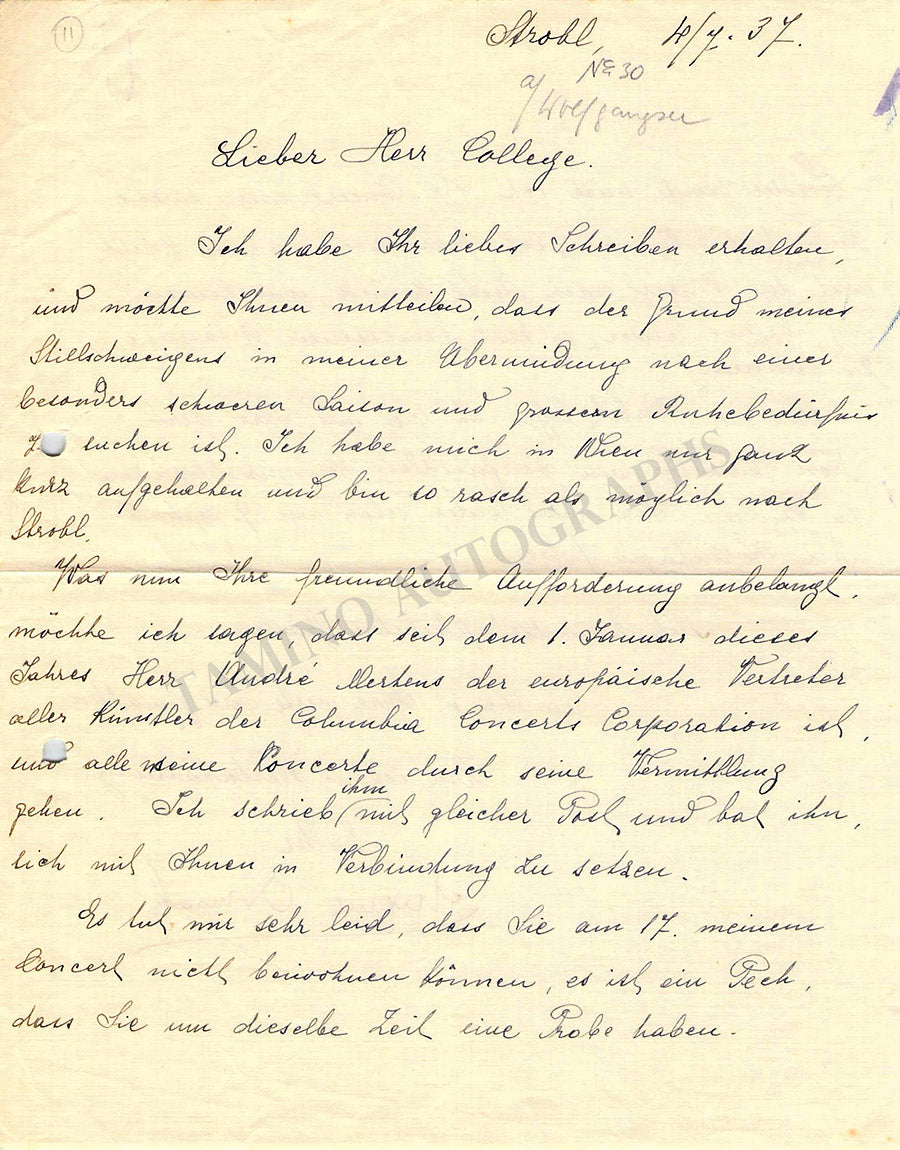 11
Strobl, 4/7. 37.
No 30
a/Wolfgangsee
Lieber Herr College.
Ich habe Ihr liebes Schreiben erhalten,
und möchte Ihnen mitteilen, dass der Grund meines
Stillschweigens in meiner Übermüdung nach einer
besonders schweren Saison und grossem Ruhebedürfnis
suchen ist. Ich habe mich in Wien nur ganz
kurz aufgehalten und bin so rasch als möglich nach
Strobl.
Was nun Ihre freundliche Aufforderung anbelangt,
möchte ich sagen, dass seit dem 1. Januar dieses
Jahres Herr André Mertens der europäische Vertreter
aller Künstler der Columbia Concerts Corporation ist,
und alle meine Concerte durch seine Vermittlung
gehen. Ich schrieb ihm mit gleicher Post und bat ihn,
sich mit Ihnen in Verbindung zu setzen.
Es tut mir sehr leid, dass Sie am 17. meinem
Concert nicht beiwohnen können, es ist ein Pech,
dass Sie um dieselbe Zeit eine Probe haben.
TAMINO AUTOGRAPHS